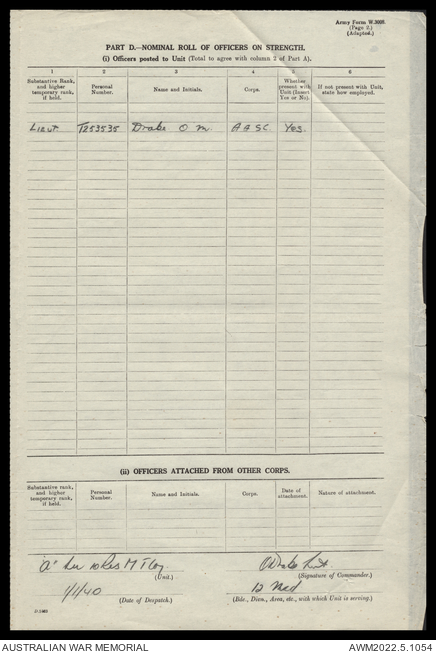 Army Form W.3008.
(Page 2.)
(Adapted.)
PART D.—NOMINAL ROLL OF OFFICERS ON STRENGTH.
(i) Officers posted to Unit (Total to agree with column 2 of Part A).
1 2 3 4 5 6
Substantive Rank, and higher temporary rank, if held. Personal Number. Name and Initials. Corps. Whether present with Unit (Insert Yes or No). If not present with Unit, state how employed.
Lieut T253535 Drake O M. A A S C. Yes.
(ii) OFFICERS ATTACHED FROM OTHER CORPS.
Substantive rank, and higher temporary rank, if held. Personal Number. Name and Initials. Corps. Date of attachment. Nature of attachment.
'A' Sec 10 Res M T Coy. ODrake Lieut.
(Unit.) (Signature of Commander.)
1/1/40
(Date of Despatch.) (Bde., Divn., Area, etc., with which Unit is serving.)
AUSTRALIAN WAR MEMORIAL AWM2022.5.1054